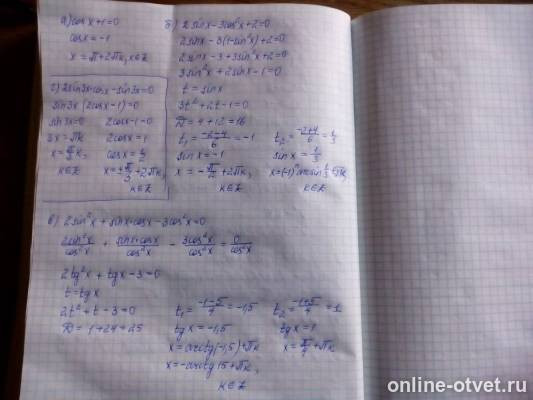 а) cos x + 1 = 0
cos x = -1
x = π + 2πk, k∈Z
б) 2 sin x - 3cos²x + 2 = 0
2 sin x - 3(1 - sin²x) + 2 = 0
2 sin x - 3 + 3 sin²x + 2 = 0
3 sin²x + 2 sin x - 1 = 0
t = sin x
3t² + 2t - 1 = 0
D = 4 + 12 = 16
t₁ = (-2-4)/6 = -1
sin x = -1
x = -π/2 + 2πk,
k∈Z
t₂ = (-2+4)/6 = 1/3
sin x = 1/3
x = (-1)ⁿ arcsin 1/3 + πk,
k∈Z
г) 2 sin3x·cosx - sin3x = 0
sin3x (2cosx - 1) = 0
sin3x = 0
3x = πk
x = π/3 k,
k∈Z
2cosx - 1 = 0
2cosx = 1
cosx = 1/2
x = ±π/3 + 2πk,
k∈Z
в) 2 sin²x + sinx·cosx - 3cos²x = 0
2sin²x/cos²x + sinx·cosx/cos²x - 3cos²x/cos²x = 0/cos²x
2tg²x + tgx - 3 = 0
t = tg x
2t² + t - 3 = 0
D = 1 + 24 = 25
t₁ = (-1-5)/4 = -1,5
tg x = -1,5
x = arctg(-1,5) + πk
x = -arctg 1,5 + πk,
k∈Z
t₂ = (-1+5)/4 = 1
tg x = 1
x = π/4 + πk
online-otvet.ru